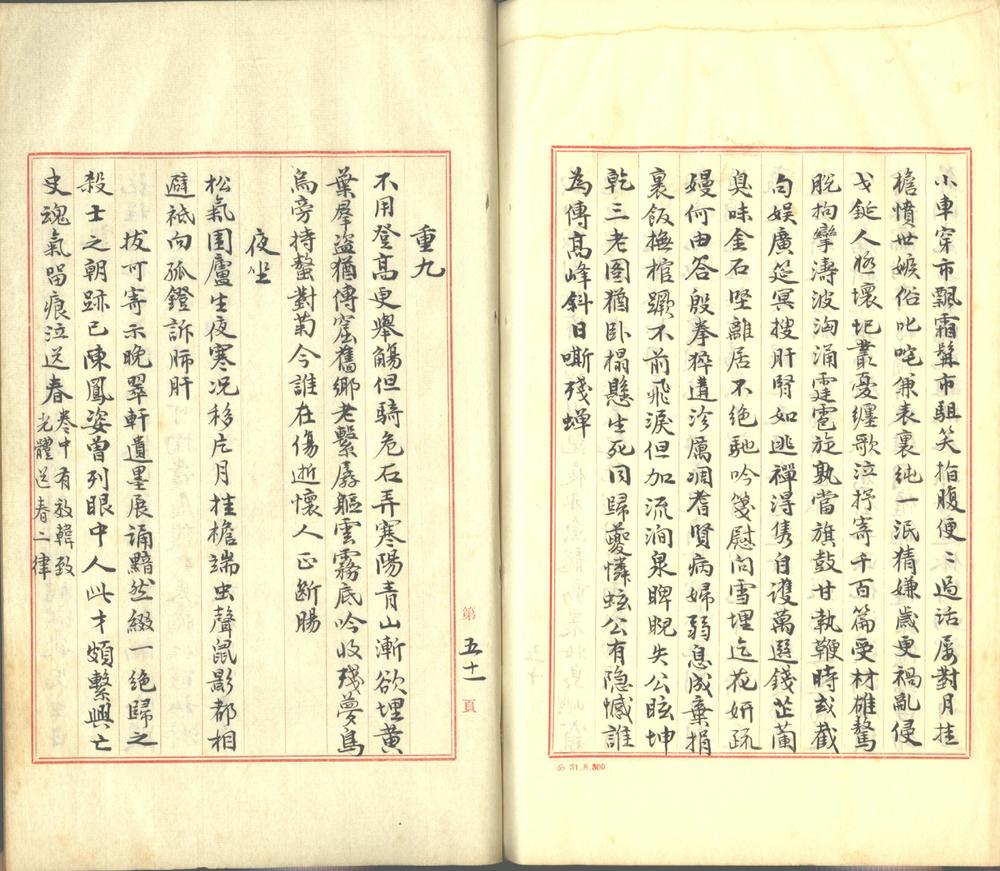 小車穿市飄霜鬢市駔笑指腹便〻過话屢對月挂
檐憤世嫉俗叱咤兼表裏純一泯猜嫌歲更禍亂侵
戈鋋人極壞圮叢憂纏歌泣抒寄千百篇受材雄驁
脫拘攣濤波洶涌霆雹旋孰當旗鼓甘執鞭時或截
句娱廣筵冥搜肝腎如逃禪淂雋自謢萬選錢芷蘭
臭味金石堅離居不绝馳吟箋慰问雪埋迄花妍疏
嫚何由答殷拳猝遘沴厲凋耆賢病婦弱息成棄捐
裹飯撫棺躑不前飛淚但加流涧泉睥睨失公眩坤
乾三老图猶卧榻懸生死同歸夔憐蚿公有隐憾誰
為傳高峰斜日嘶殘蟬
31.8.300
重九
不用登高更舉觴但騎危石弄寒陽青山漸欲埋黄
葉羣盜猶傳窟舊鄉老繫孱軀雲霧底吟收殘夢鳥
烏旁持螯對菊今誰在傷逝懷人正断腸
夜坐
松氣圍廬生夜寒况移片月挂檐端虫聲鼠影都相
避祗向孤鐙訴肺肝
拔可寄示晚翠軒遺墨展誦黯然綴一绝歸之
殺士之朝跡已陳鳳姿曾列眼中人此才頗繫興亡
史魂氣留痕泣送春
卷中有效韓致
光體送春二律
第五十一頁